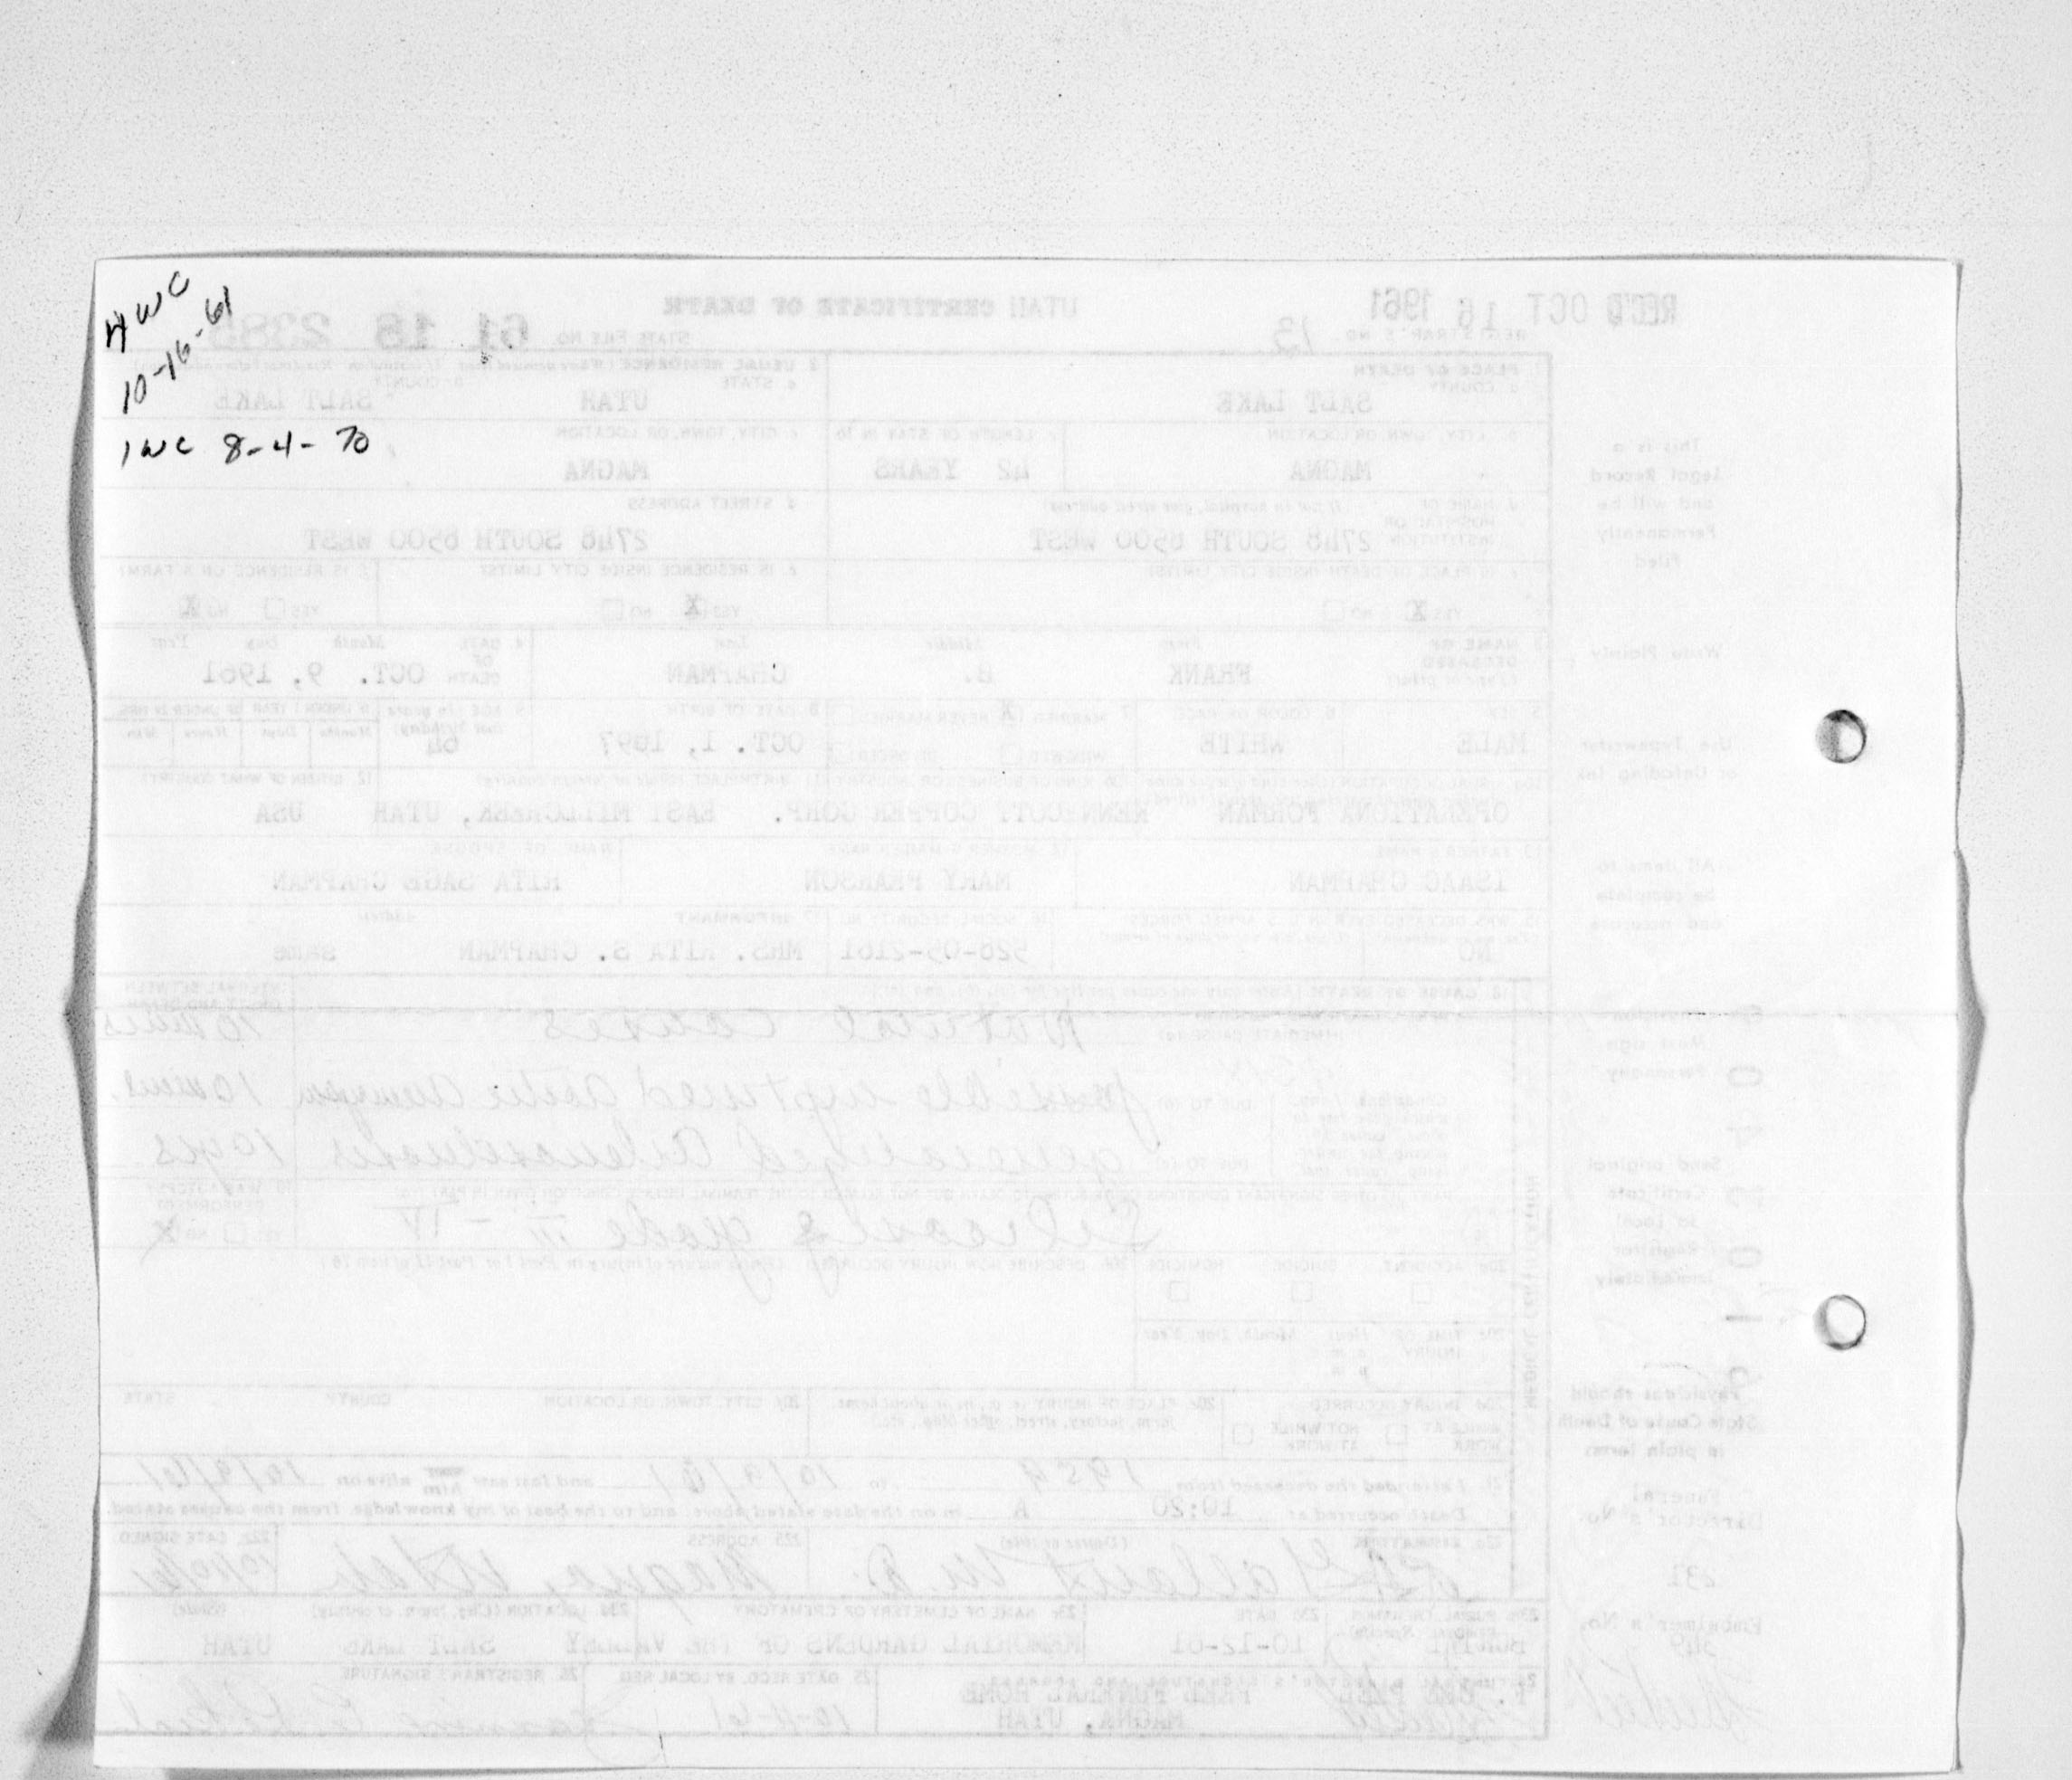 HWC
10-16-61
1WC 8-4-70
REC'D OCT 16 1961
UTAH CERTIFICATE OF DEATH
REGISTRAR'S NO. 13
STATE FILE NO. 61 18
PLACE OF DEATH
a. COUNTY
SALT LAKE
2. USUAL RESIDENCE
a. STATE
UTAH
b. COUNTY
SALT LAKE
b. CITY, TOWN, OR LOCATION
MAGNA
c. LENGTH OF STAY IN 1b
42 YEARS
c. CITY, TOWN, OR LOCATION
MAGNA
d. NAME OF HOSPITAL OR INSTITUTION
(If not in hospital, give street address)
2748 SOUTH 8500 WEST
d. STREET ADDRESS
2748 SOUTH 8500 WEST
e. IS PLACE OF DEATH INSIDE CITY LIMITS?
YES X NO
e. IS RESIDENCE INSIDE CITY LIMITS?
YES X NO
f. IS RESIDENCE ON A FARM?
YES NO X
3. NAME OF DECEASED
(Type or print)
First Middle Last
FRANK B. CHAPMAN
4. DATE OF DEATH
Month Day Year
OCT. 9, 1961
5. SEX
MALE
6. COLOR OR RACE
WHITE
7. MARRIED X NEVER MARRIED
WIDOWED DIVORCED
8. DATE OF BIRTH
OCT. 1, 1897
9. AGE (In years last birthday)
64
IF UNDER 1 YEAR IF UNDER 24 HRS.
Months Days Hours Min.
OPERATIONA FORMAN
KENNECOTT COPPER CORP.
EAST MILLCREEK, UTAH
12. CITIZEN OF WHAT COUNTRY?
USA
13. FATHER'S NAME
ISAAC CHAPMAN
14. MOTHER'S MAIDEN NAME
MARY PEARSON
NAME OF SPOUSE
RITA SAGE CHAPMAN
15. WAS DECEASED EVER IN U.S. ARMED FORCES?
NO
16. SOCIAL SECURITY NO.
528-05-2161
17. INFORMANT
MRS. RITA S. CHAPMAN
Address
same
18. CAUSE OF DEATH
INTERVAL BETWEEN ONSET AND DEATH
IMMEDIATE CAUSE (a)
Natural causes
10 mins
DUE TO (b)
possible ruptured Aortic Aneurysm 10 mins.
DUE TO (c)
generalized Arteriosclerosis 10 yrs
Silicosis grade III - IV
19. WAS AUTOPSY PERFORMED?
YES NO X
20a. ACCIDENT SUICIDE HOMICIDE
20b. DESCRIBE HOW INJURY OCCURRED
20c. TIME OF INJURY Hour Month, Day, Year
a.m.
p.m.
20d. INJURY OCCURRED
WHILE AT WORK NOT WHILE AT WORK
20e. PLACE OF INJURY (e.g., in or about home, farm, factory, street, office bldg., etc.)
20f. CITY, TOWN, OR LOCATION COUNTY STATE
21. I attended the deceased from 1959 to 10/9/61 and last saw him alive on 10/9/61
Death occurred at 10:20 A m on the date stated above; and to the best of my knowledge, from the causes stated.
22a. SIGNATURE (Degree or title)
M.D.
22b. ADDRESS
Magna, Utah
22c. DATE SIGNED
23b. DATE
10-12-61
23c. NAME OF CEMETERY OR CREMATORY
MEMORIAL GARDENS OF THE VALLEY
23d. LOCATION (City, town, or county) (State)
SALT LAKE UTAH
BURIAL
PEEL FUNERAL HOME
MAGNA, UTAH
25. DATE RECD. BY LOCAL REG.
26. REGISTRAR'S SIGNATURE
MEDICAL CERTIFICATION
This is a
Legal Record
and will be
Permanently
Filed
Write Plainly
Use Typewriter
or Unfading Ink
All items to
be complete
and accurate
Send original
Certificate
to Local
Registrar
Immediately
Physicians should
State Cause of Death
in plain terms
Funeral
Director's No.
231
Embalmer's No.